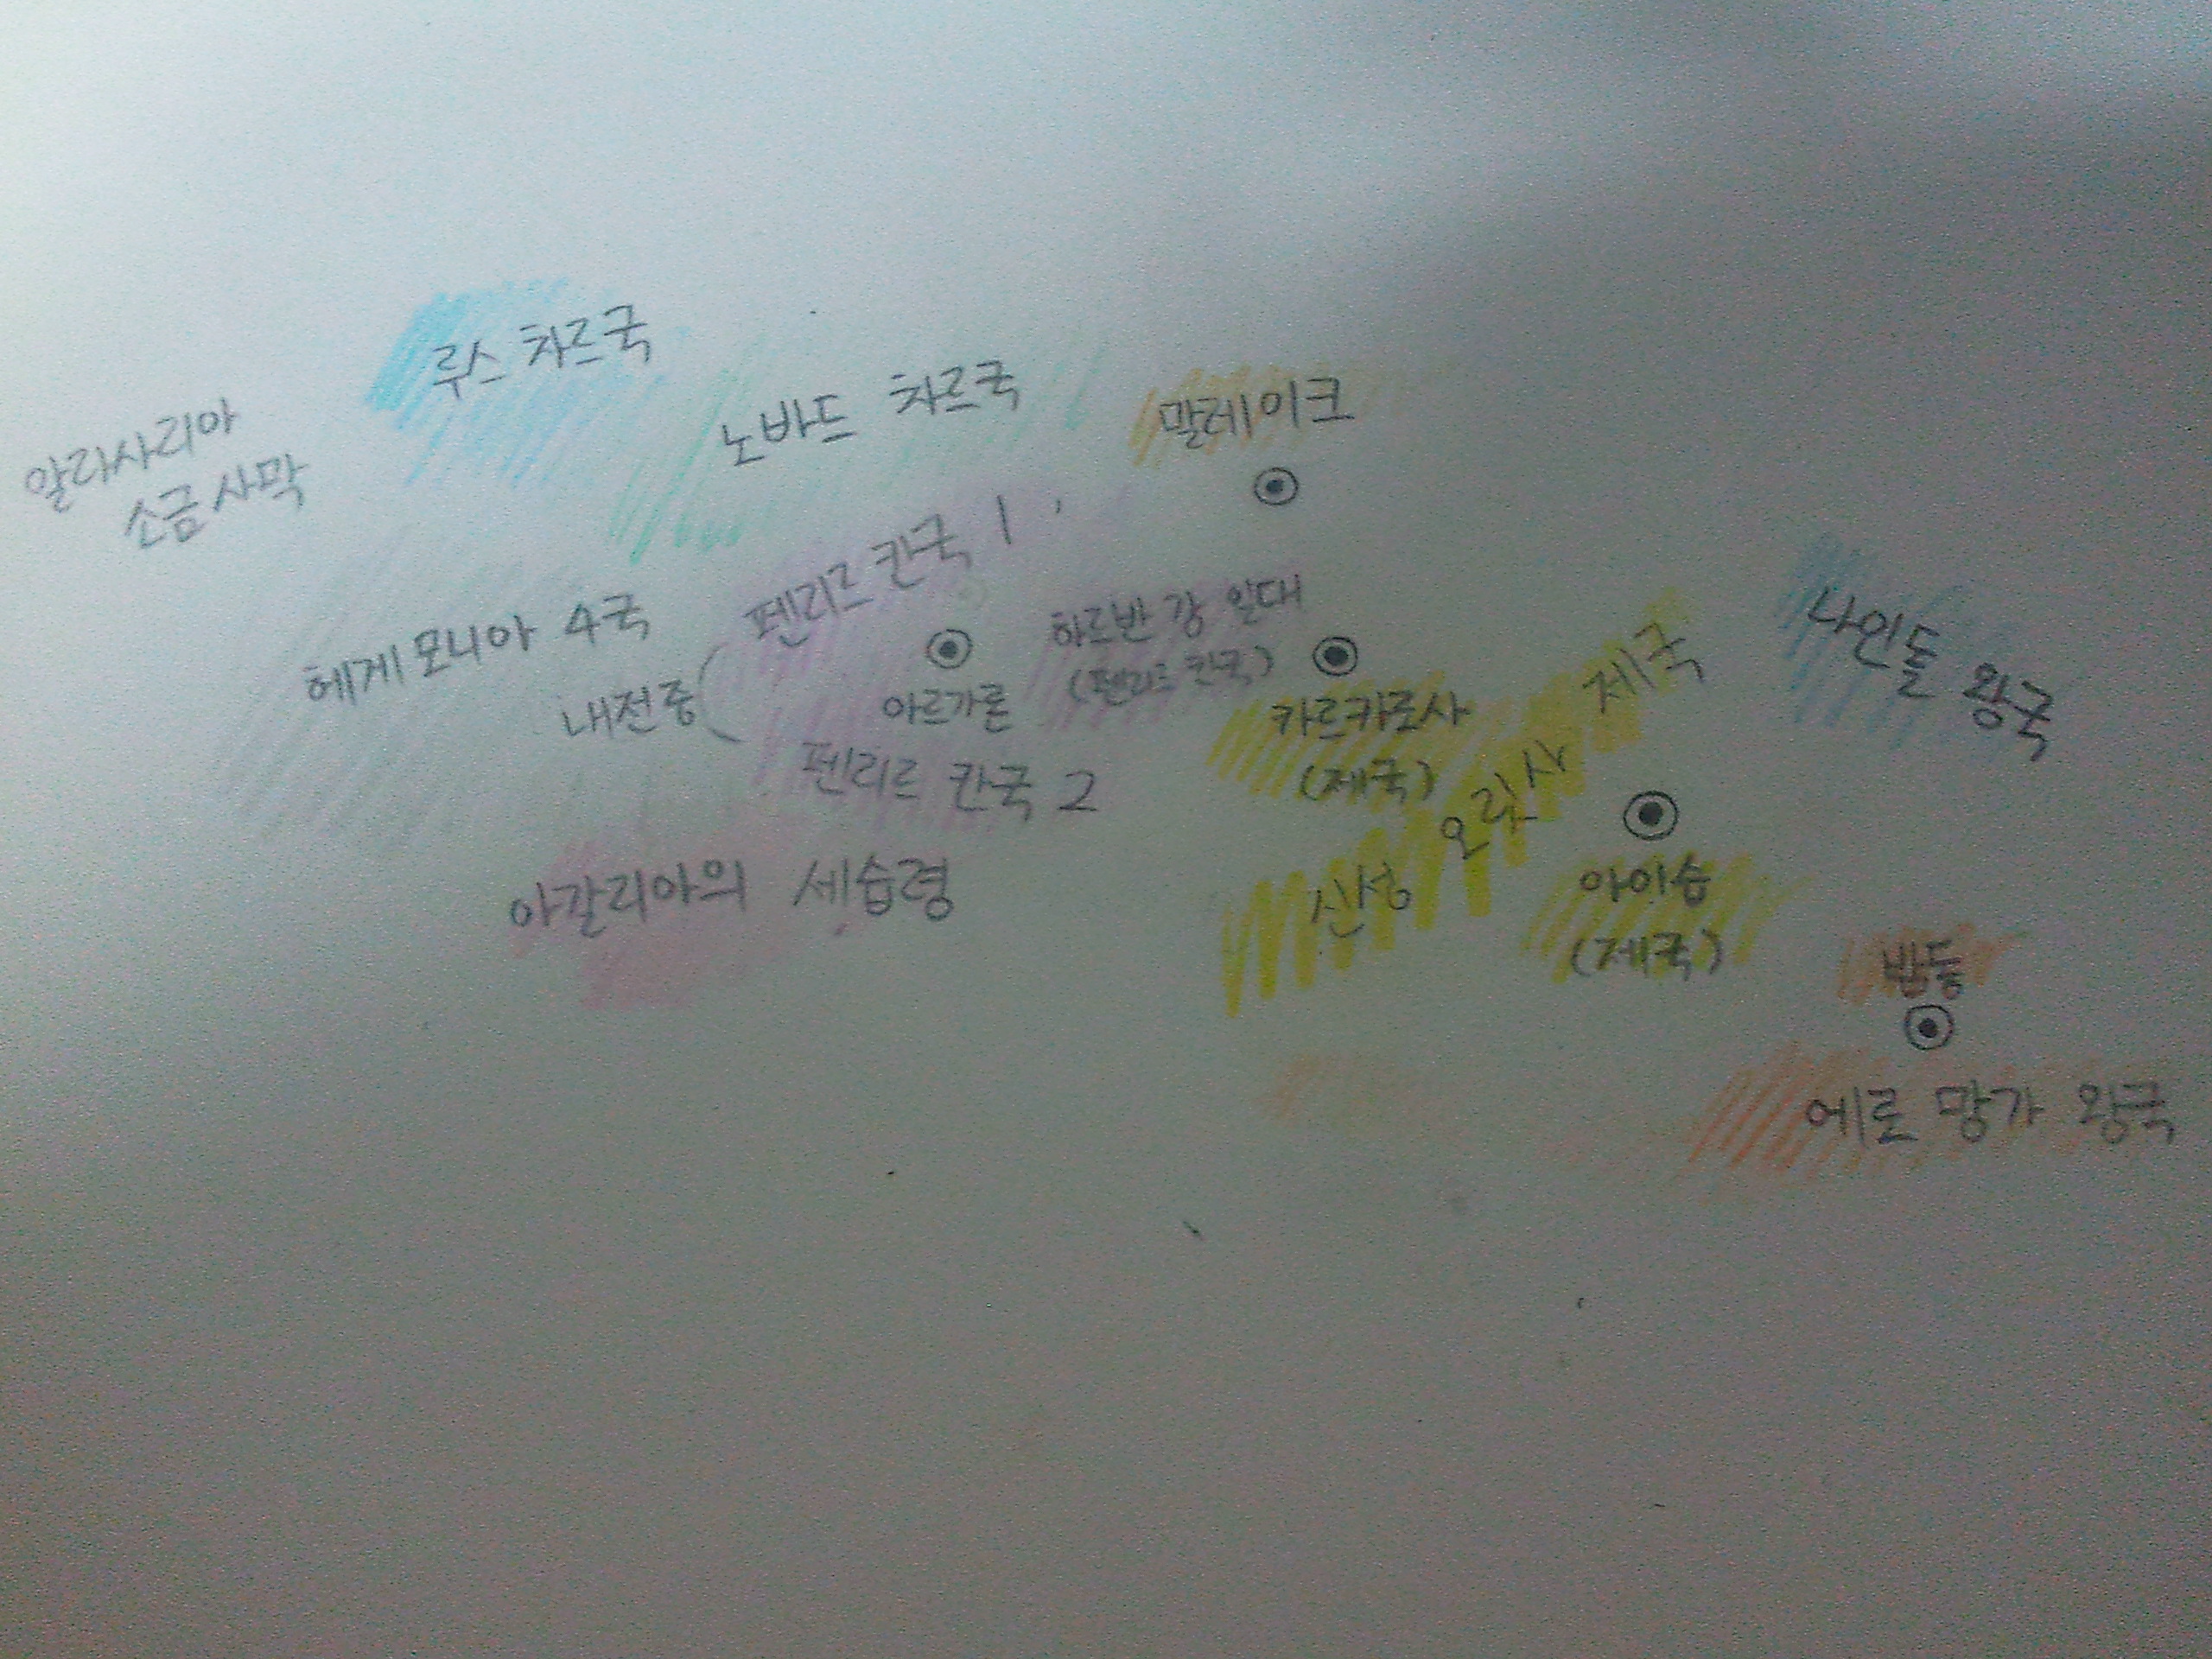 루스 차르국
노바드 차르국
말레이크
알라사리아
소금사막
펜리르 칸국 1
헤게모니아 4국
내전중
아르가론
하르반 강 일대
(펜리르 칸국)
펜리르 칸국 2
카르카로사
(제국)
신성 오릿사 제국
나인돌 왕국
아갈리아의 세습령
아이숩
(제국)
밥둠
에로 망가 왕국